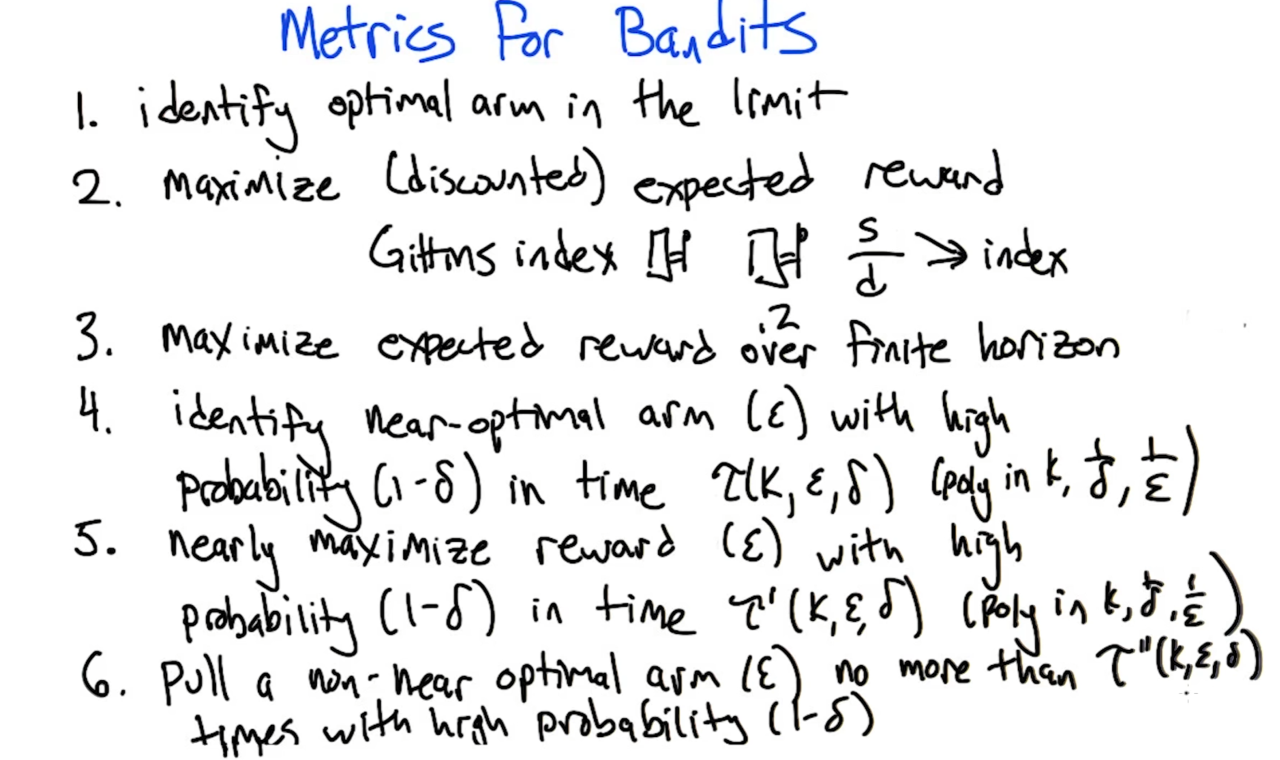 Metrics for Bandits
1. identify optimal arm in the limit
2. maximize (discounted) expected reward
Gittins index s/d → index
3. maximize expected reward over finite horizon
.2
4. identify near-optimal arm (ε) with high
probability (1-δ) in time τ(k, ε, δ) (poly in k, 1/δ, 1/ε)
5. nearly maximize reward (ε) with high
probability (1-δ) in time τ'(k, ε, δ) (poly in k, 1/δ, 1/ε)
6. Pull a non-near optimal arm (ε) no more than τ"(k, ε, δ)
times with high probability (1-δ)